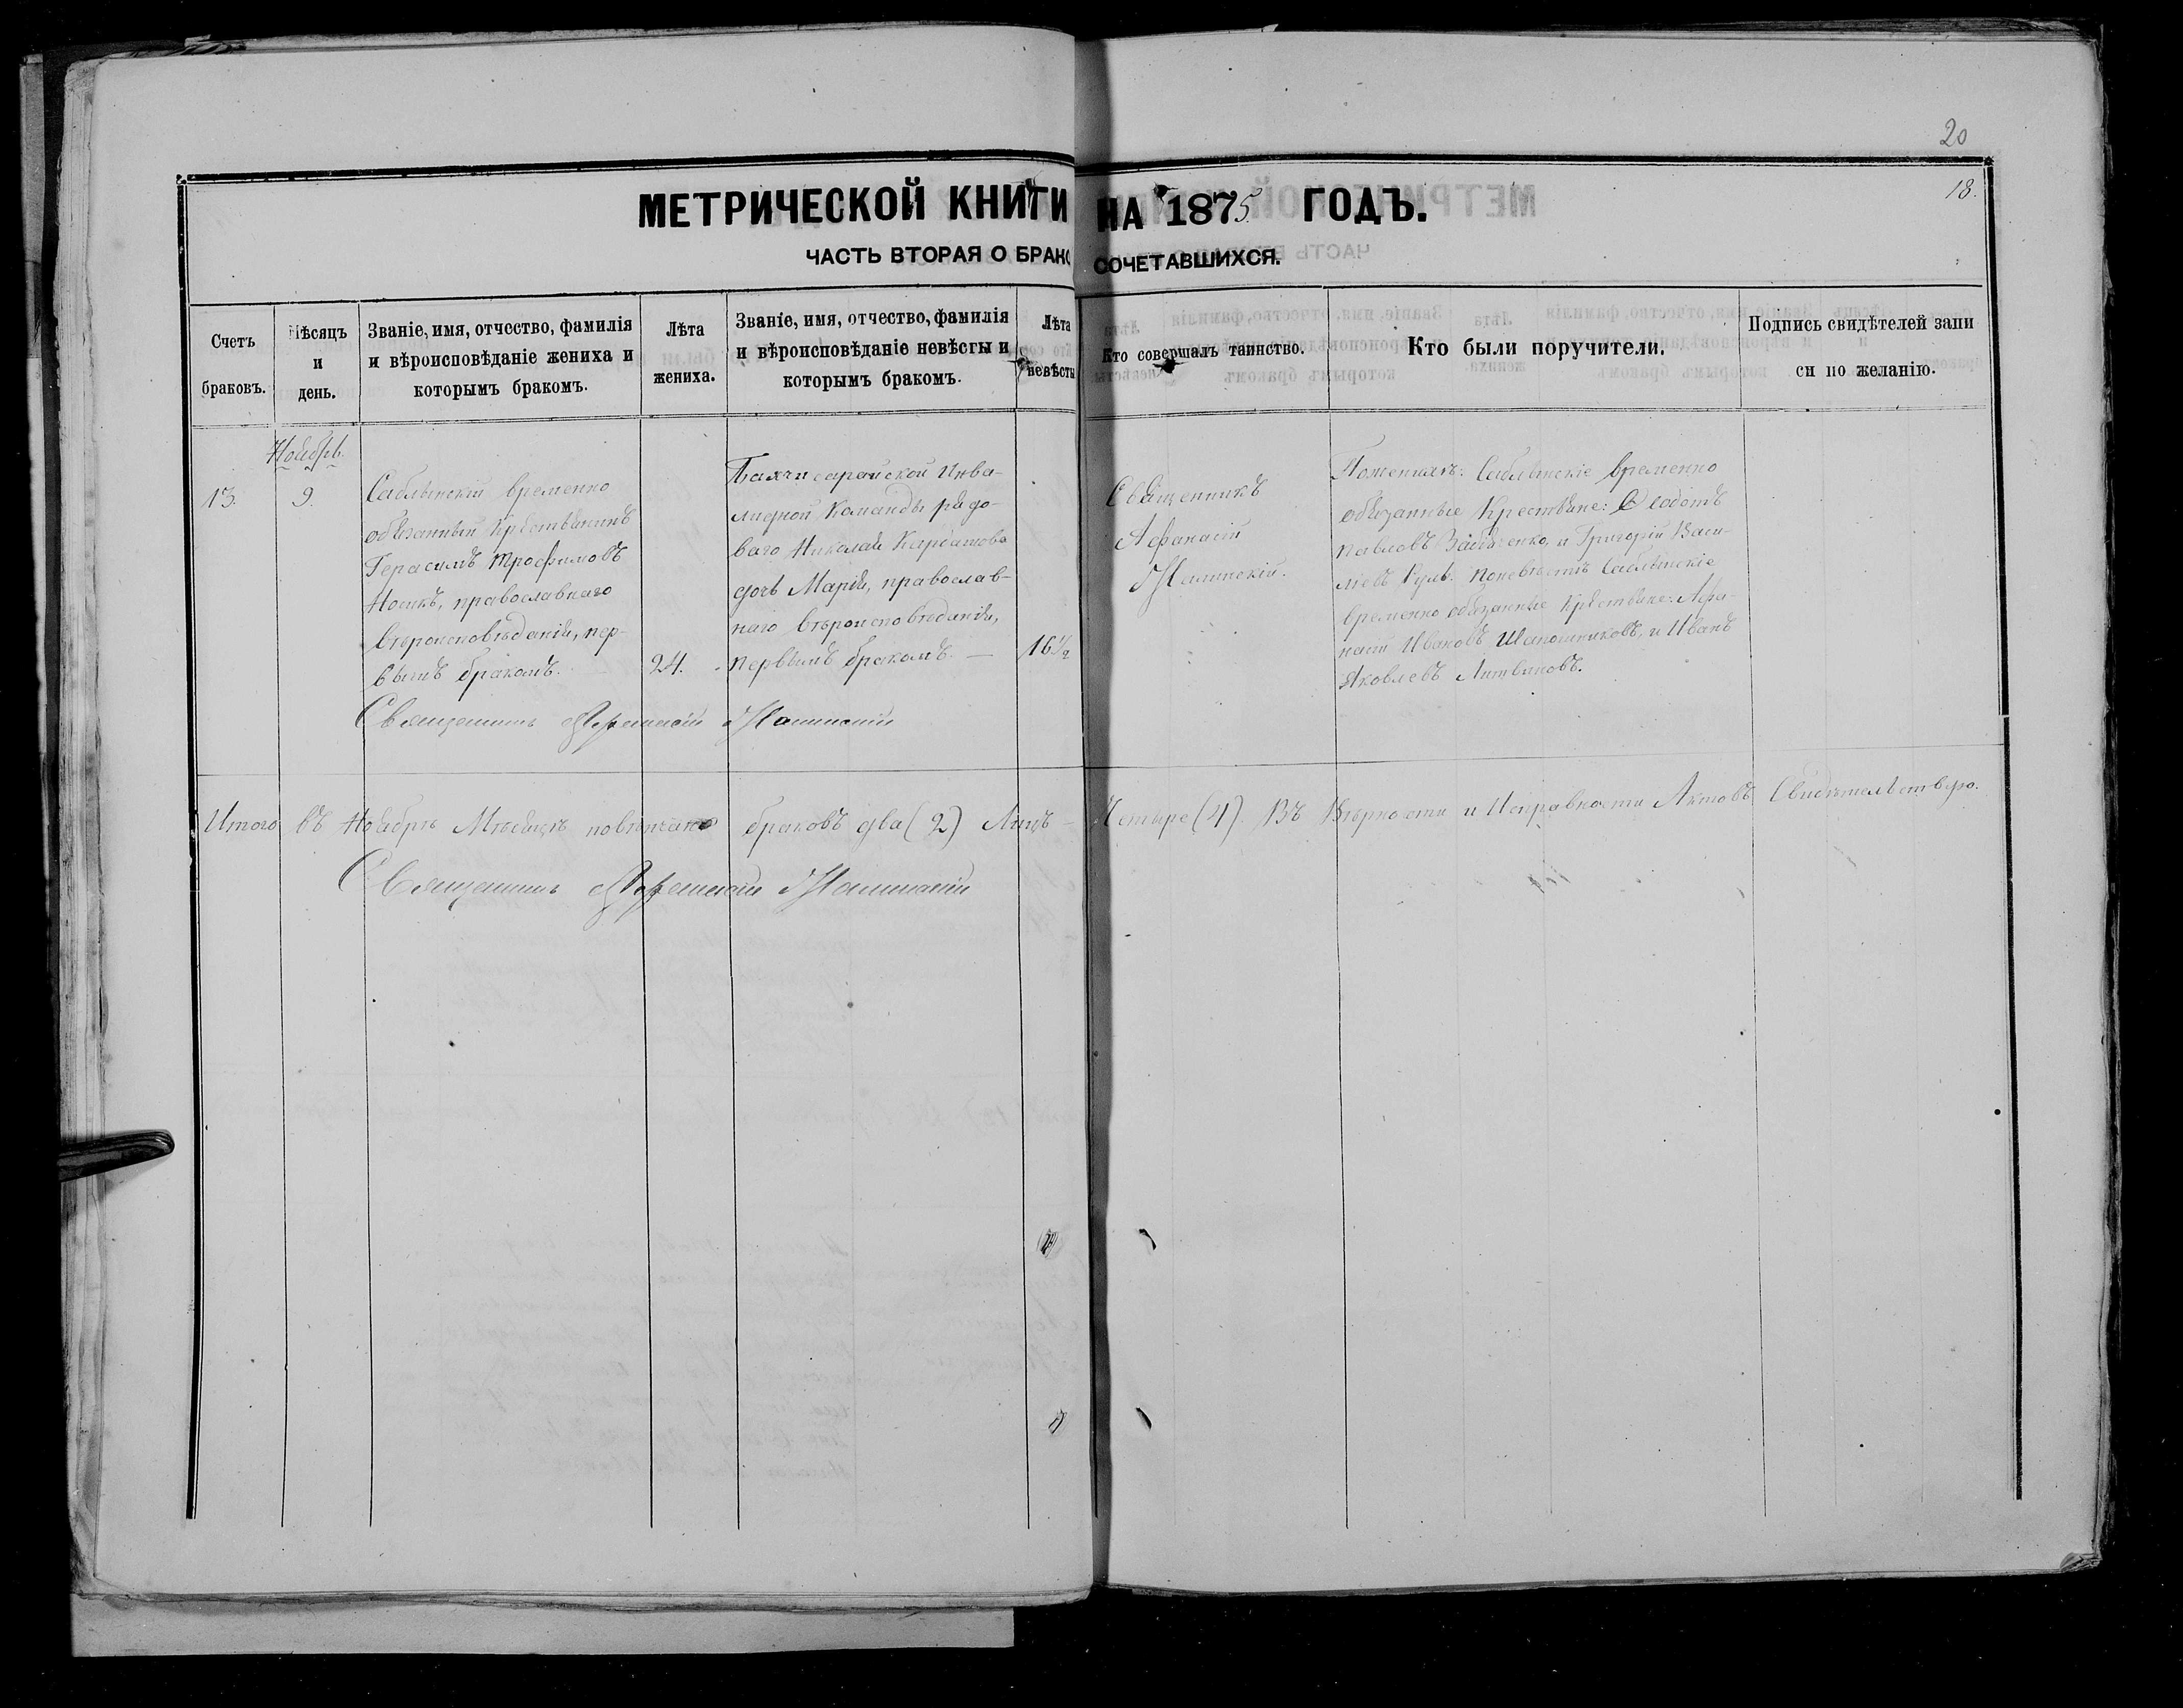 20
18.
МЕТРИЧЕСКОЙ КНИГИ НА 1875 ГОДЪ.
ЧАСТЬ ВТОРАЯ О БРАКОСОЧЕТАВШИХСЯ.
Счетъ браковъ.
Мѣсяцъ и день.
Званіе, имя, отчество, фамилія
и вѣроисповѣданіе жениха и
которымъ бракомъ.
Лѣта
жениха.
Званіе, имя, отчество, фамилія
и вѣроисповѣданіе невѣсты и
которымъ бракомъ.
Лѣта
невѣсты
Кто совершалъ таинство.
Кто были поручители.
Подпись свидѣтелей запи
си по желанію.
Ноябрь.
13.
9.
Саблынскій временно
обязанный Крестьянинъ
Герасимъ Трофимовъ
православнаго
вѣроисповѣданія, пер-
вымъ бракомъ.
24.
Бахчисарайской Инва-
лидной Команды рядо-
ваго Николая
дочь Марія, православ-
наго вѣроисповѣданія,
первымъ бракомъ. —
16 1/2
Священникъ
Афанасій
Поженихѣ: Саблынскіе временно
обязанные Крестьяне: Ѳеодотъ
Павловъ и Григорій Васи-
льевъ Поневѣстѣ Саблынскіе
временно обязанные Крестьяне: Афа-
насій Ивановъ Шапошниковъ, и Иванъ
Яковлевъ Литвиновъ.
Священникъ Афанасій
Итого въ Ноябрѣ Мѣсяцѣ повѣнчано браковъ два (2) Лицъ — Четыре (4). Въ Вѣрности и Исправности Актовъ Свидѣтельствую.
Священникъ Афанасій